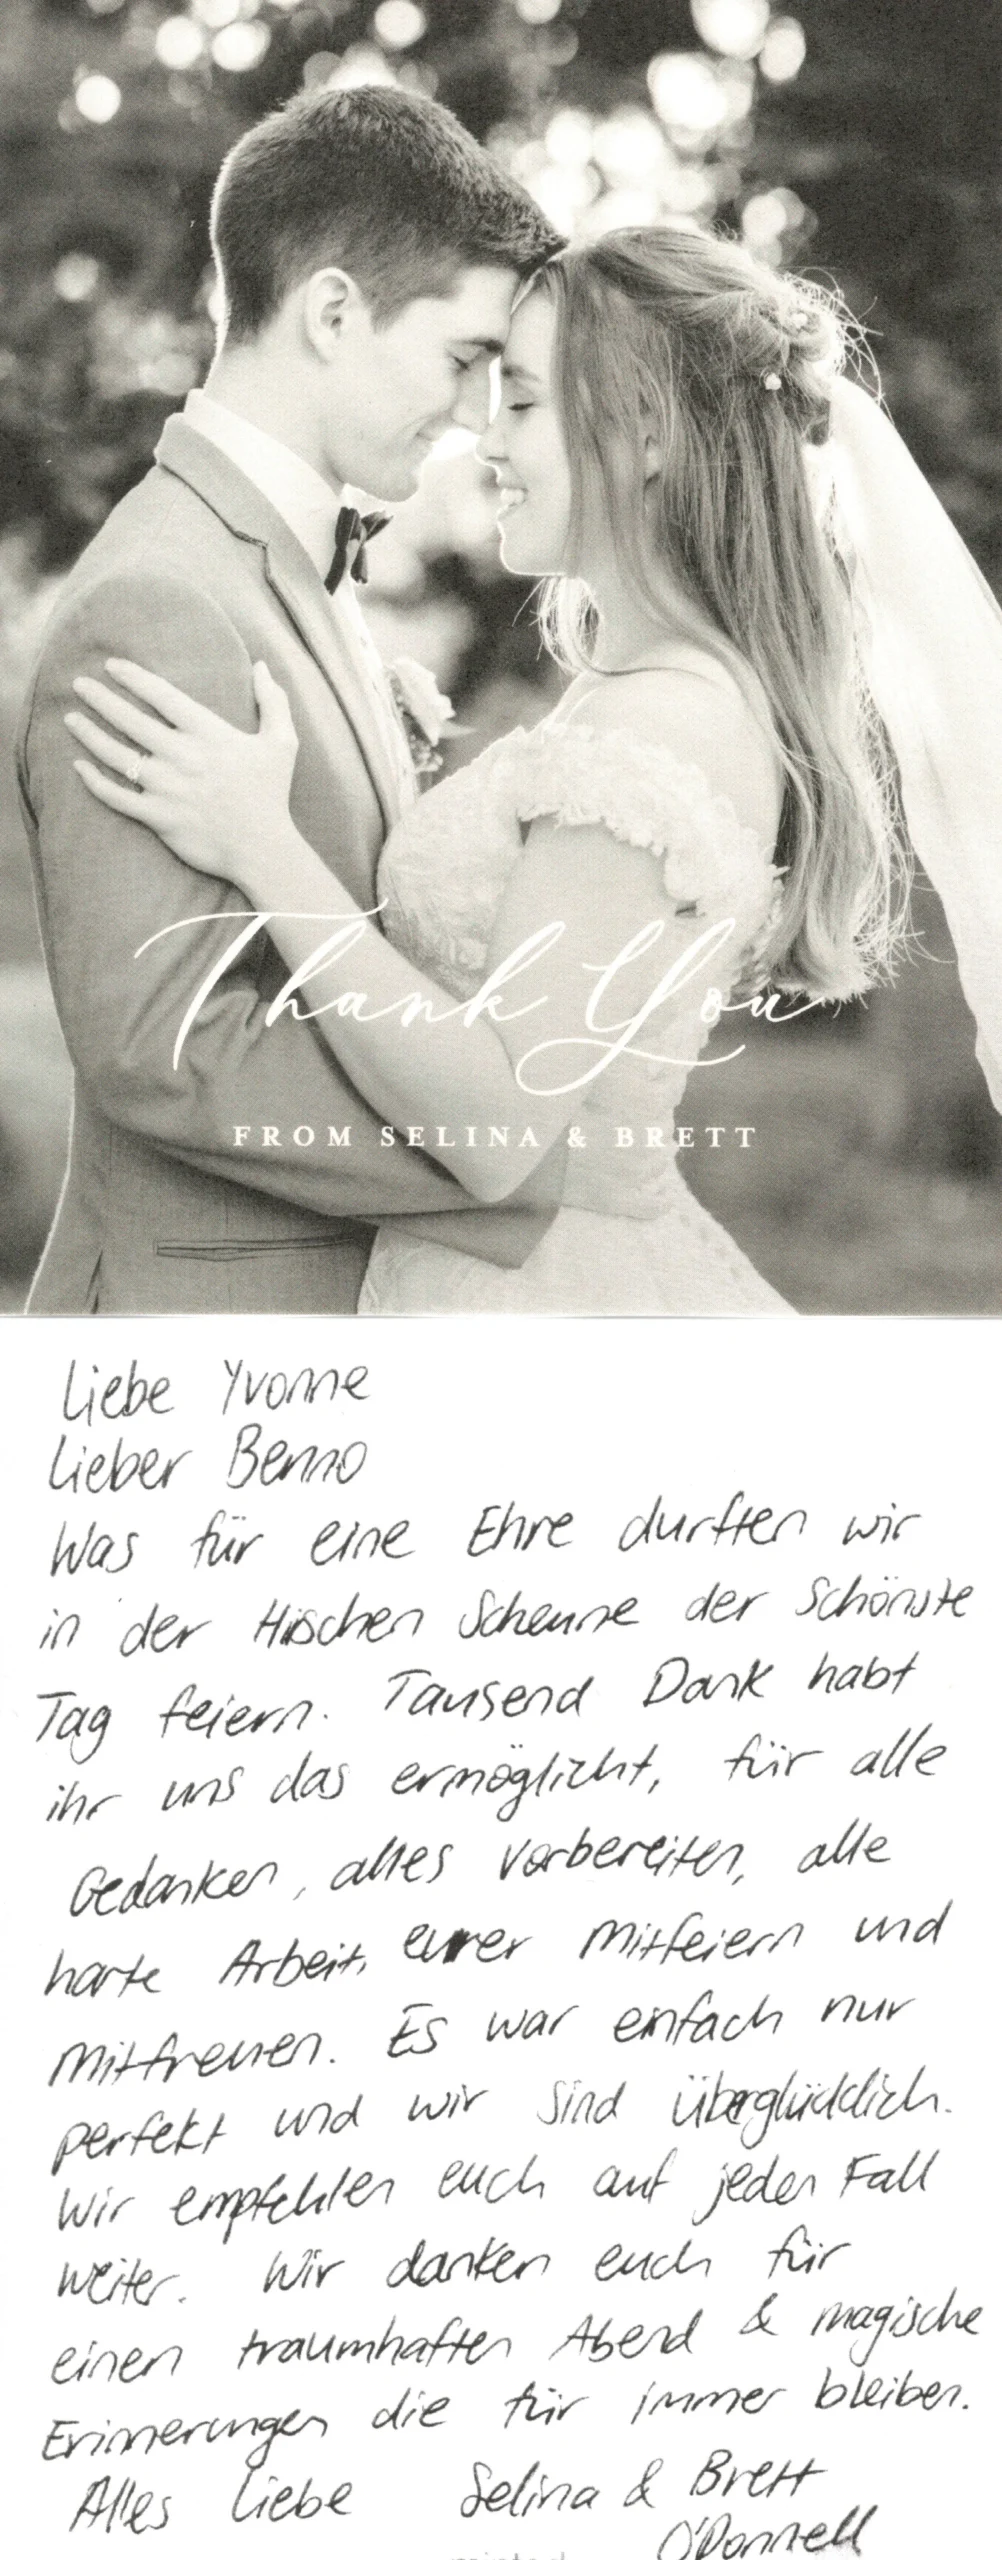 Thank You
FROM SELINA & BRETT
Liebe Yvonne
Lieber Benno
Was für eine Ehre durften wir
in der Hirschen Scheune der Schönste
Tag feiern. Tausend Dank habt
ihr uns das ermöglicht, für alle
Gedanken, alles Vorbereiten, alle
harte Arbeit, eurer Mitfeiern und
Mitfreuen. Es war einfach nur
perfekt und wir sind überglücklich.
Wir empfehlen euch auf jeden Fall
weiter. Wir danken euch für
einen traumhaften Abend & magische
Erinnerungen die für immer bleiben.
Alles Liebe Selina & Brett
O'Donnell